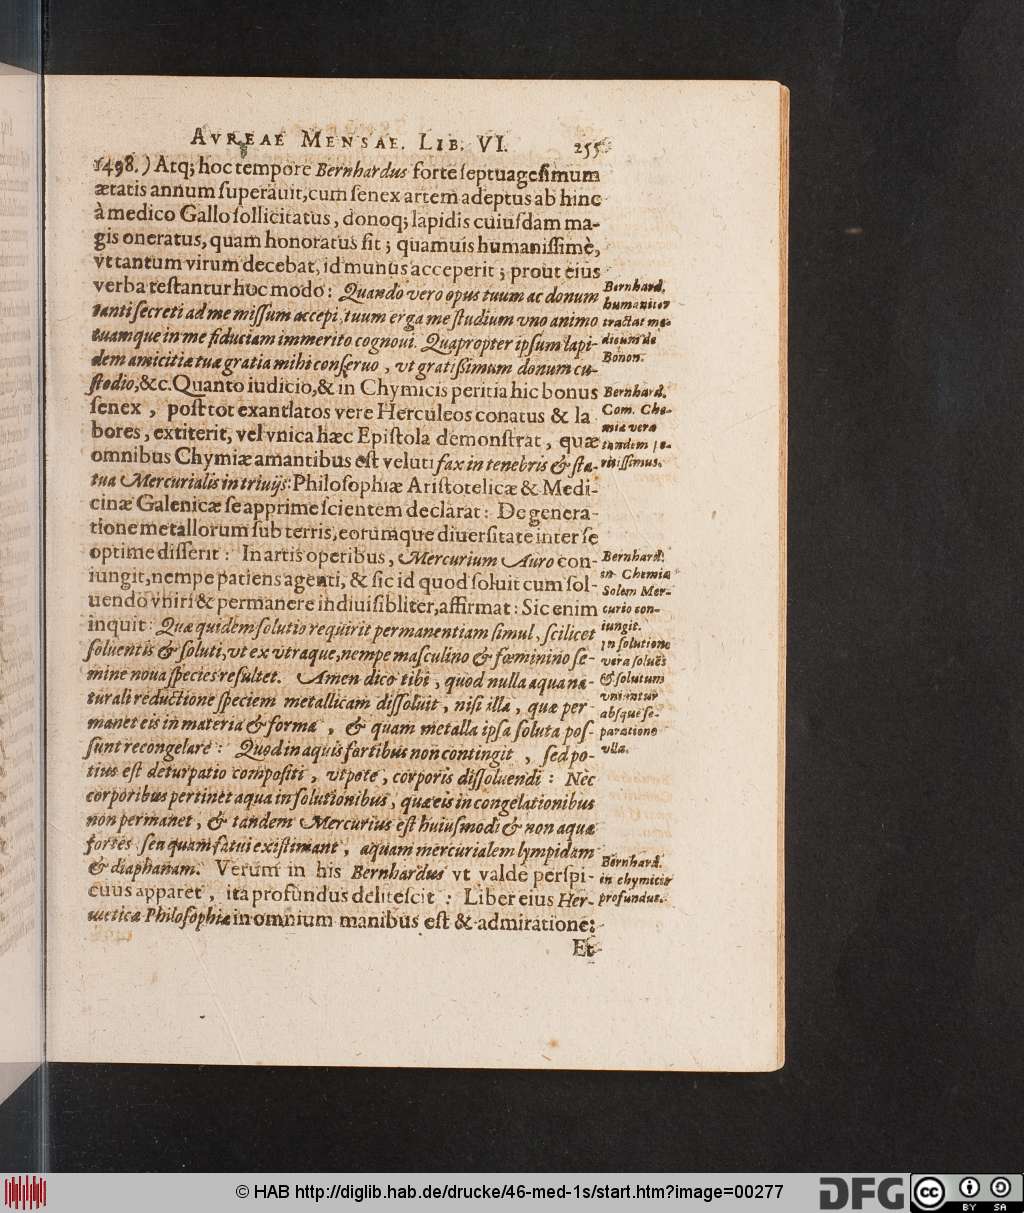 AVREAE MENSAE. LIB. VI. 255
1498.) Atq; hoc tempore Bernhardus forte septuagesimum
ætatis annum superauit, cum senex artem adeptus ab hinc
à medico Gallo sollicitatus, donoq; lapidis cuiusdam ma-
gis oneratus, quam honoratus sit; quamuis humanissimè,
vt tantum virum decebat, id munus acceperit; prout eius
verba testantur hoc modo: Quando vero opus tuum ac donum
tanti secreti ad me missum accepi, tuum erga me studium vno animo
tuamque in me fiduciam immerito cognoui. Quapropter ipsum lapi-
dem amicitiæ tuæ gratia mihi conseruo, vt gratissimum donum cu-
stodio, &c. Quanto iudicio, & in Chymicis peritia hic bonus
senex, post tot exantlatos vere Herculeos conatus & la
bores, extiterit, vel vnica hæc Epistola demonstrat, quæ
omnibus Chymiæ amantibus est veluti fax in tenebris & sta-
tua Mercurialis in triuijs: Philosophiæ Aristotelicæ & Medi-
cinæ Galenicæ se apprime scientem declarat: De genera-
tione metallorum sub terris, eorumque diuersitate inter se
optime disserit: In artis operibus, Mercurium Auro con-
iungit, nempe patiens agenti, & sic id quod soluit cum sol-
uendo vniri & permanere indiuisibliter, affirmat: Sic enim
inquit: Quæ quidem solutio requirit permanentiam simul, scilicet
soluentis & soluti, vt ex vtraque, nempe masculino & fœminino se-
mine noua species resultet. Amen dico tibi, quod nulla aqua na-
turali reductione speciem metallicam dissoluit, nisi illa, quæ per-
manet eis in materia & forma, & quam metalla ipsa soluta pos-
sunt recongelare: Quod in aquis fortibus non contingit, sed po-
tius est deturpatio compositi, vtpote, corporis dissoluendi: Nec
corporibus pertinet aqua in solutionibus, quæ eis in congelationibus
non permanet, & tandem Mercurius est huiusmodi & non aquæ
fortes, seu quam fatui existimant, aquam mercurialem lympidam
& diaphanam. Verum in his Bernhardus vt valde perspi-
cuus apparet, ita profundus delitescit: Liber eius Her-
meticæ Philosophiæ in omnium manibus est & admiratione:
Et
Bernhard.
humaniter
tractat me-
dicum de
Bonon.
Bernhard.
Com. Che-
mia vera
tandem pe-
ritissimus.
Bernhard.
in Chemia
Solem Mer-
curio con-
iungit.
In solutione
vera soluēs
& solutum
vniuntur
absque se-
paratione
vlla.
Bernhard.
in chymicis
profundus.
© HAB http://diglib.hab.de/drucke/46-med-1s/start.htm?image=00277
DFG
cc
BY SA